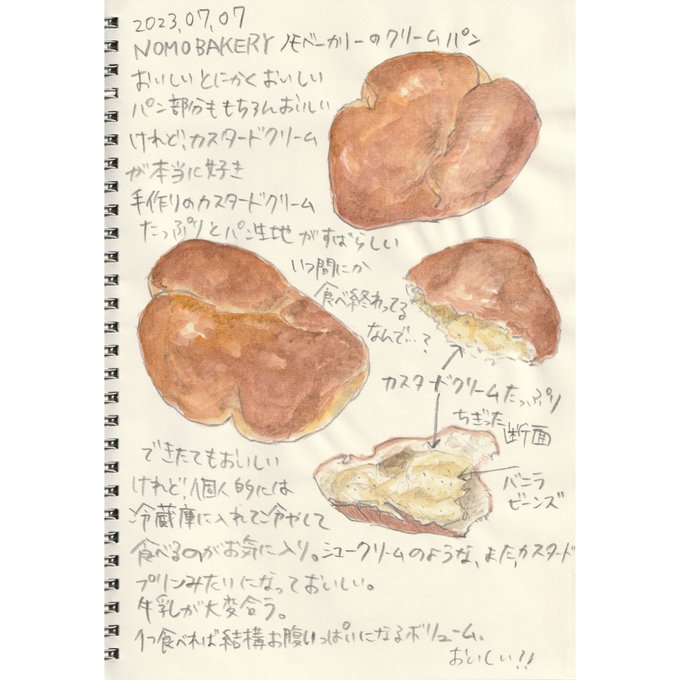 2023.07.07
NOMO BAKERY ノモベーカリーのクリームパン
おいしいとにかくおいしい
パン部分ももちろんおいしい
けれど、カスタードクリーム
が本当に好き
手作りのカスタードクリーム
たっぷりとパン生地がすばらしい
いつ間にか
食べ終わってる
なんで…?
カスタードクリームたっぷり
ちぎった断面
バニラ
ビーンズ
できたてもおいしい
けれど、個人的には
冷蔵庫に入れて冷やして
食べるのがお気に入り。シュークリームのような、また、カスタード
プリンみたいになっておいしい。
牛乳が大変合う。
1つ食べれば結構お腹いっぱいになるボリューム。
おいしい!!